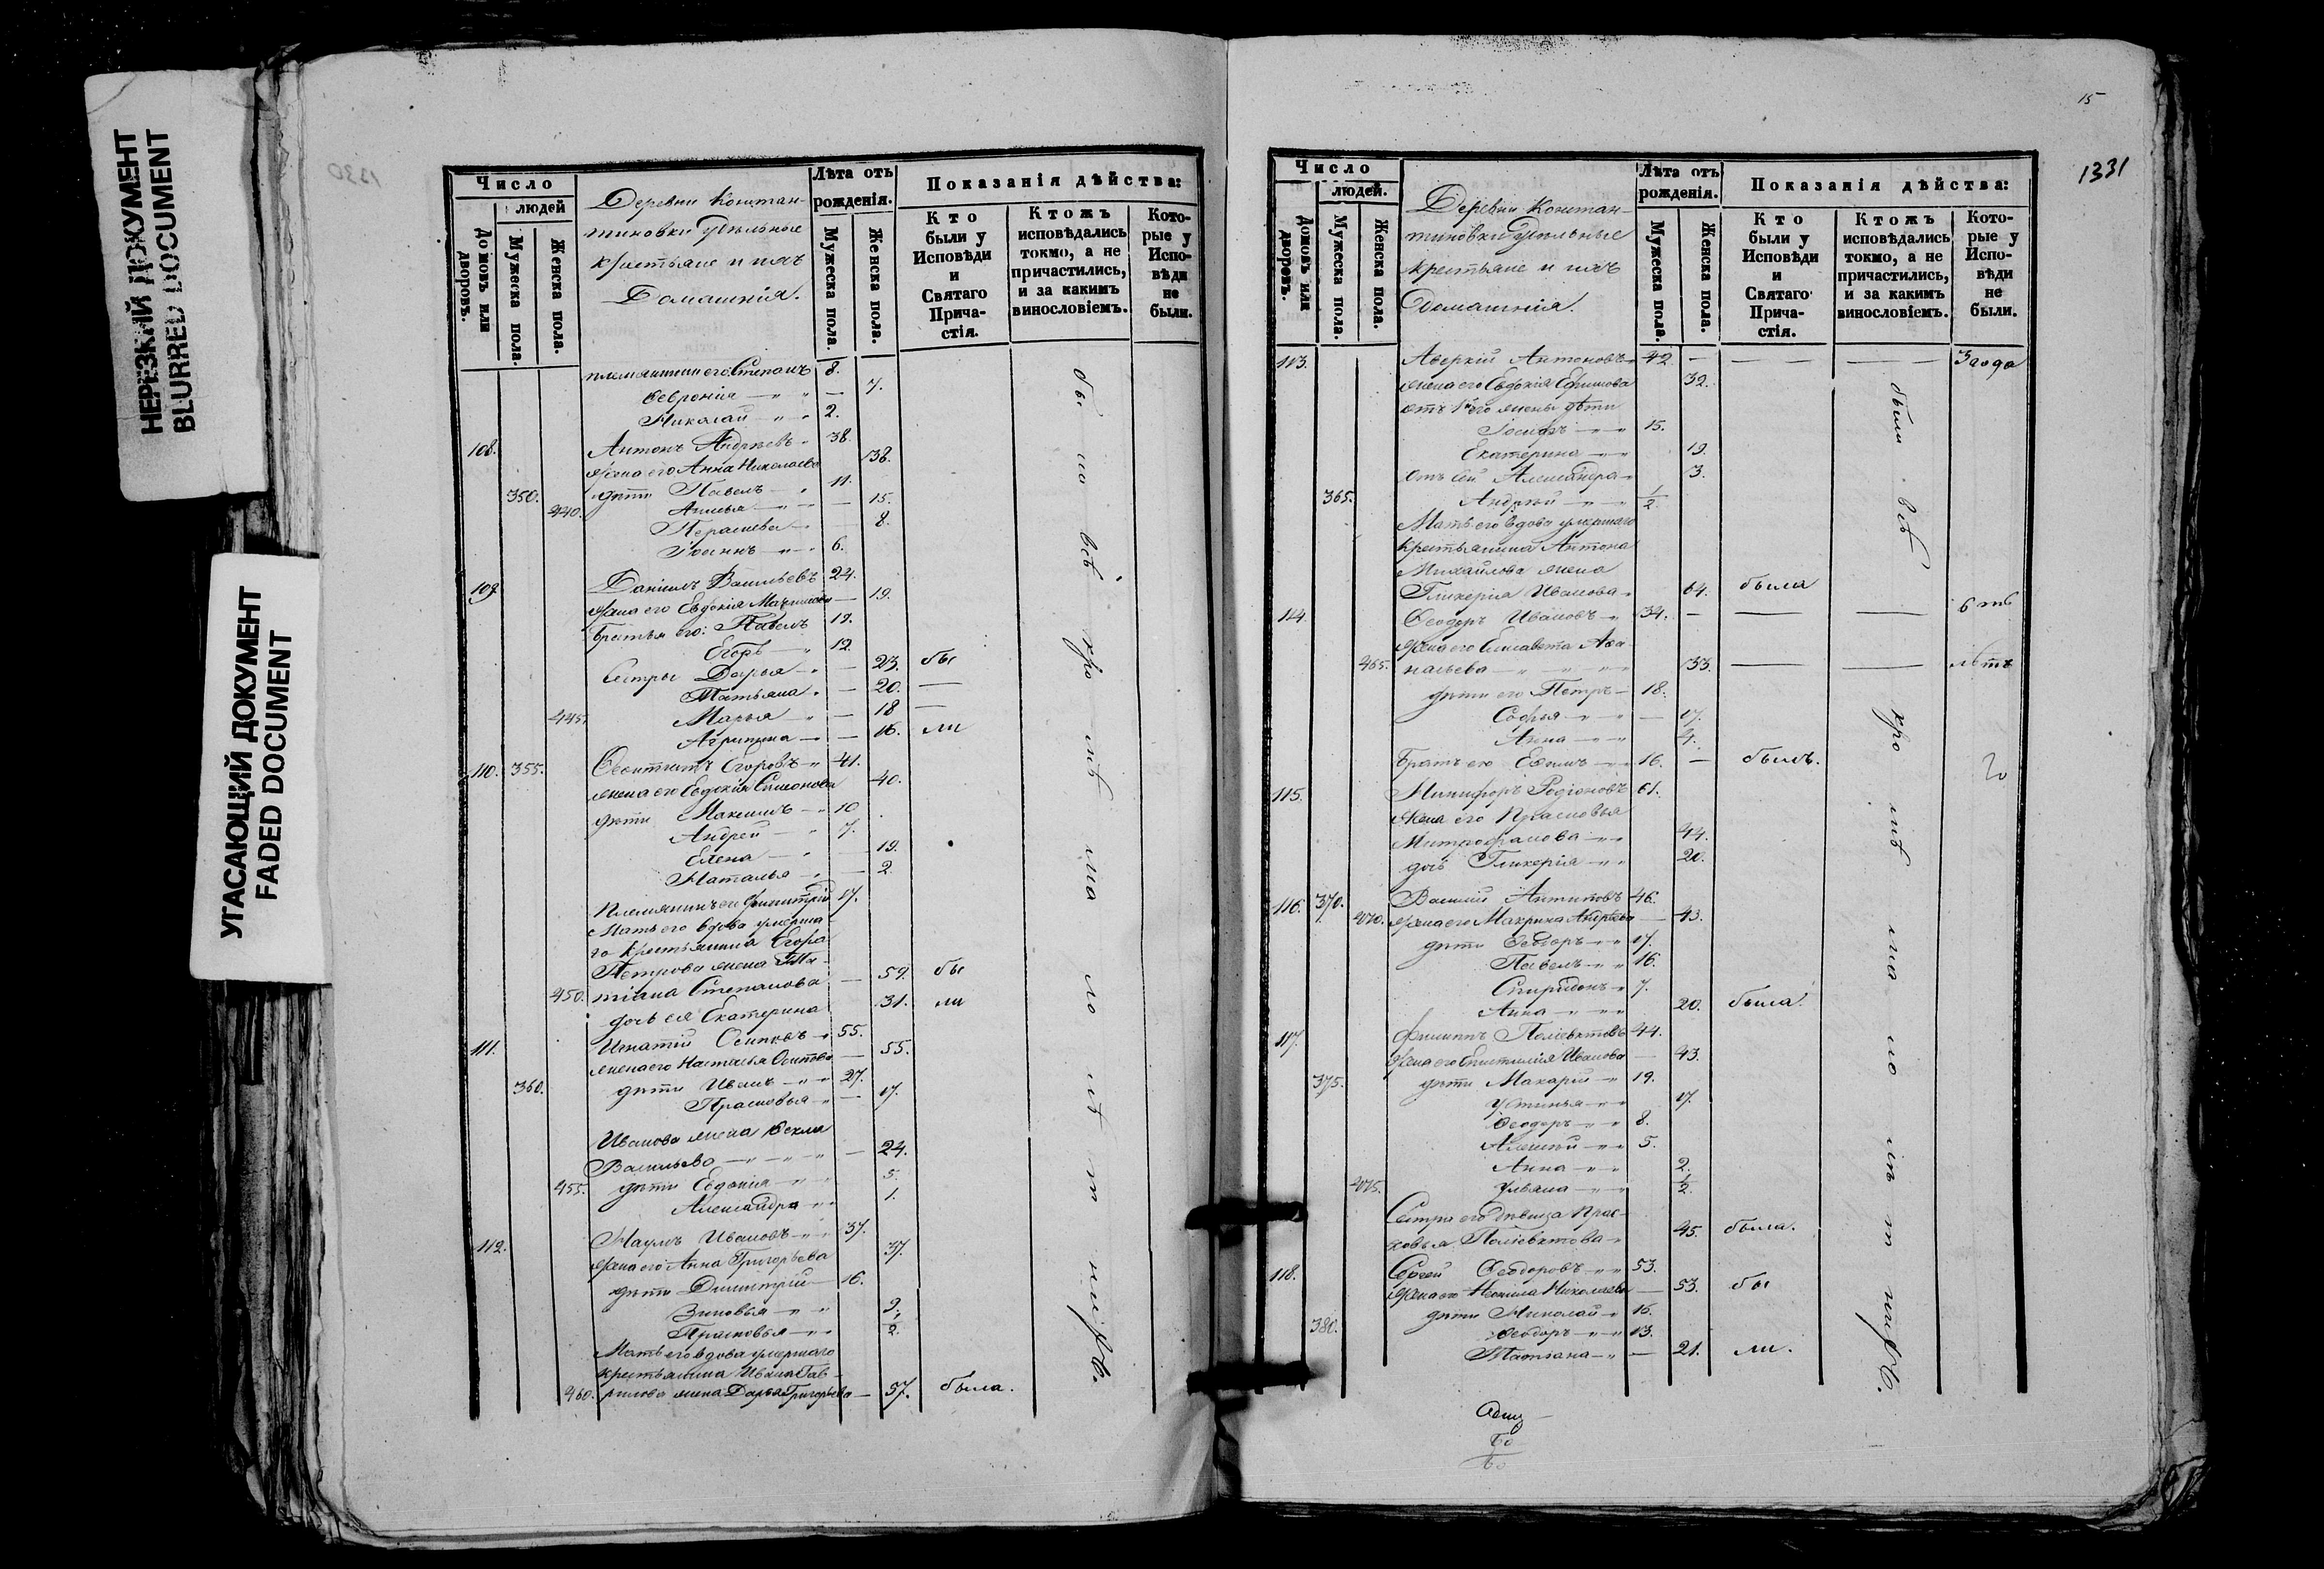 НЕРЕЗКИЙ ДОКУМЕНТ
BLURRED DOCUMENT
УГАСАЮЩИЙ ДОКУМЕНТ
FADED DOCUMENT
1330
Число
людей
Домовъ или дворовъ.
Мужеска пола.
Женска пола.
Деревни Констан-
тиновки удѣльные
крестьяне и ихъ
Домашнія.
Лѣта отъ рожденія.
Мужеска пола.
Женска пола.
Показанія дѣйства:
Кто были у Исповѣди и Святаго Прича-стія.
Ктожъ исповѣдались токмо, а не причастились, и за какимъ винословіемъ.
Кото-рые у Испо-вѣди не были.
племянники его: Степанъ 8.
Февронія — 7.
Николай 2.
108. Антонъ Андреевъ 38.
жена его Анна Николаева 38.
350. дѣти Павелъ 11.
440. — 15.
8.
Іоаннъ 6.
109. Даніилъ Васильевъ 24.
жена его Евдокія — 19.
братья его: Павелъ 19.
Егоръ 12.
Сестры Дарья — 23. бы
Татьяна — 20. —
445. Марья — 18 —
Агрипина — 16. ли
110. 355. Феоктистъ Егоровъ 41.
жена его Евдокія Симонова 40.
дѣти Максимъ 10
Андрей 7.
Елена 19.
Наталья — 2.
Племянникъ его Димитрій 17.
Мать его вдова умерша-
го крестьянина Егора
Петрова жена Та-
450. тіана Степанова — 59. бы
дочь ея Екатерина 31. ли
111. Игнатій Осиповъ 55.
жена его Настасья Осипова — 55.
360. дѣти Иванъ 27.
Прасковья — 17.
Иванова жена Фекла
Васильева — 24.
455. дѣти Евдокія 5.
Александра 1.
112. Наумъ Ивановъ 37.
жена его Анна Григорьева 37.
дѣти Димитрій 16.
Зиновья 9.
Прасковья 1/2.
Мать его вдова умершаго
крестьянина Ивана Гав-
460. рилова жена Дарья Григорьева — 57. была.
были всѣ кромѣ малолѣтнихъ.
15
1331
Число
людей.
Домовъ или дворовъ.
Мужеска пола.
Женска пола.
Деревни Констан-
тиновки Удѣльные
крестьяне и ихъ
Домашнія.
Лѣта отъ рожденія.
Мужеска пола.
Женска пола.
Показанія дѣйства:
Кто были у Исповѣди и Святаго Прича-стія.
Ктожъ исповѣдались токмо, а не причастились, и за какимъ винословіемъ.
Кото-рые у Испо-вѣди не были.
113. Аверкій Антоновъ 42. — — — 3 года
жена его Евдокія Ефимова 32.
отъ 1й его жены дѣти
Іосифъ 15.
Екатерина 19.
отъ сей Александра 3.
365. Андрей 1/2
Мать его вдова умершаго
крестьянина Антона
Михайлова жена
Гликерія Иванова 64. была
114. Феодоръ Ивановъ 34. — — — 6 ть
жена его Елисавета Афа-
465. насьева 33. — — лѣтъ
дѣти его Петръ 18.
Софья — 17.
Анна 4.
братъ его Ефимъ 16. — былъ.
115. Никифоръ Родіоновъ 61.
жена его Прасковья
Митрофанова 44.
дочь Гликерія 20.
116. 370. Василій Антиповъ 46.
470. жена его Макрина Андреева — 43.
дѣти Феодоръ 17.
Павелъ 16.
Спиридонъ 7.
Анна 20. была.
117. Филиппъ Полиевктовъ 44.
жена его Епистимія Иванова — 43.
375. дѣти Макарій 19.
Устинья 17.
Феодоръ 8.
Алексѣй 5.
Анна 2.
475. Ульяна 1/2.
Сестра его дѣвица Прас-
ковья Полиевктова 45. была.
118. Сергей Феодоровъ 53.
жена его Неонила Николаева — 53. бы
дѣти Николай 16.
380. Феодоръ 13.
Татіана — 21. ли.
были всѣ кромѣ малолѣтнихъ.